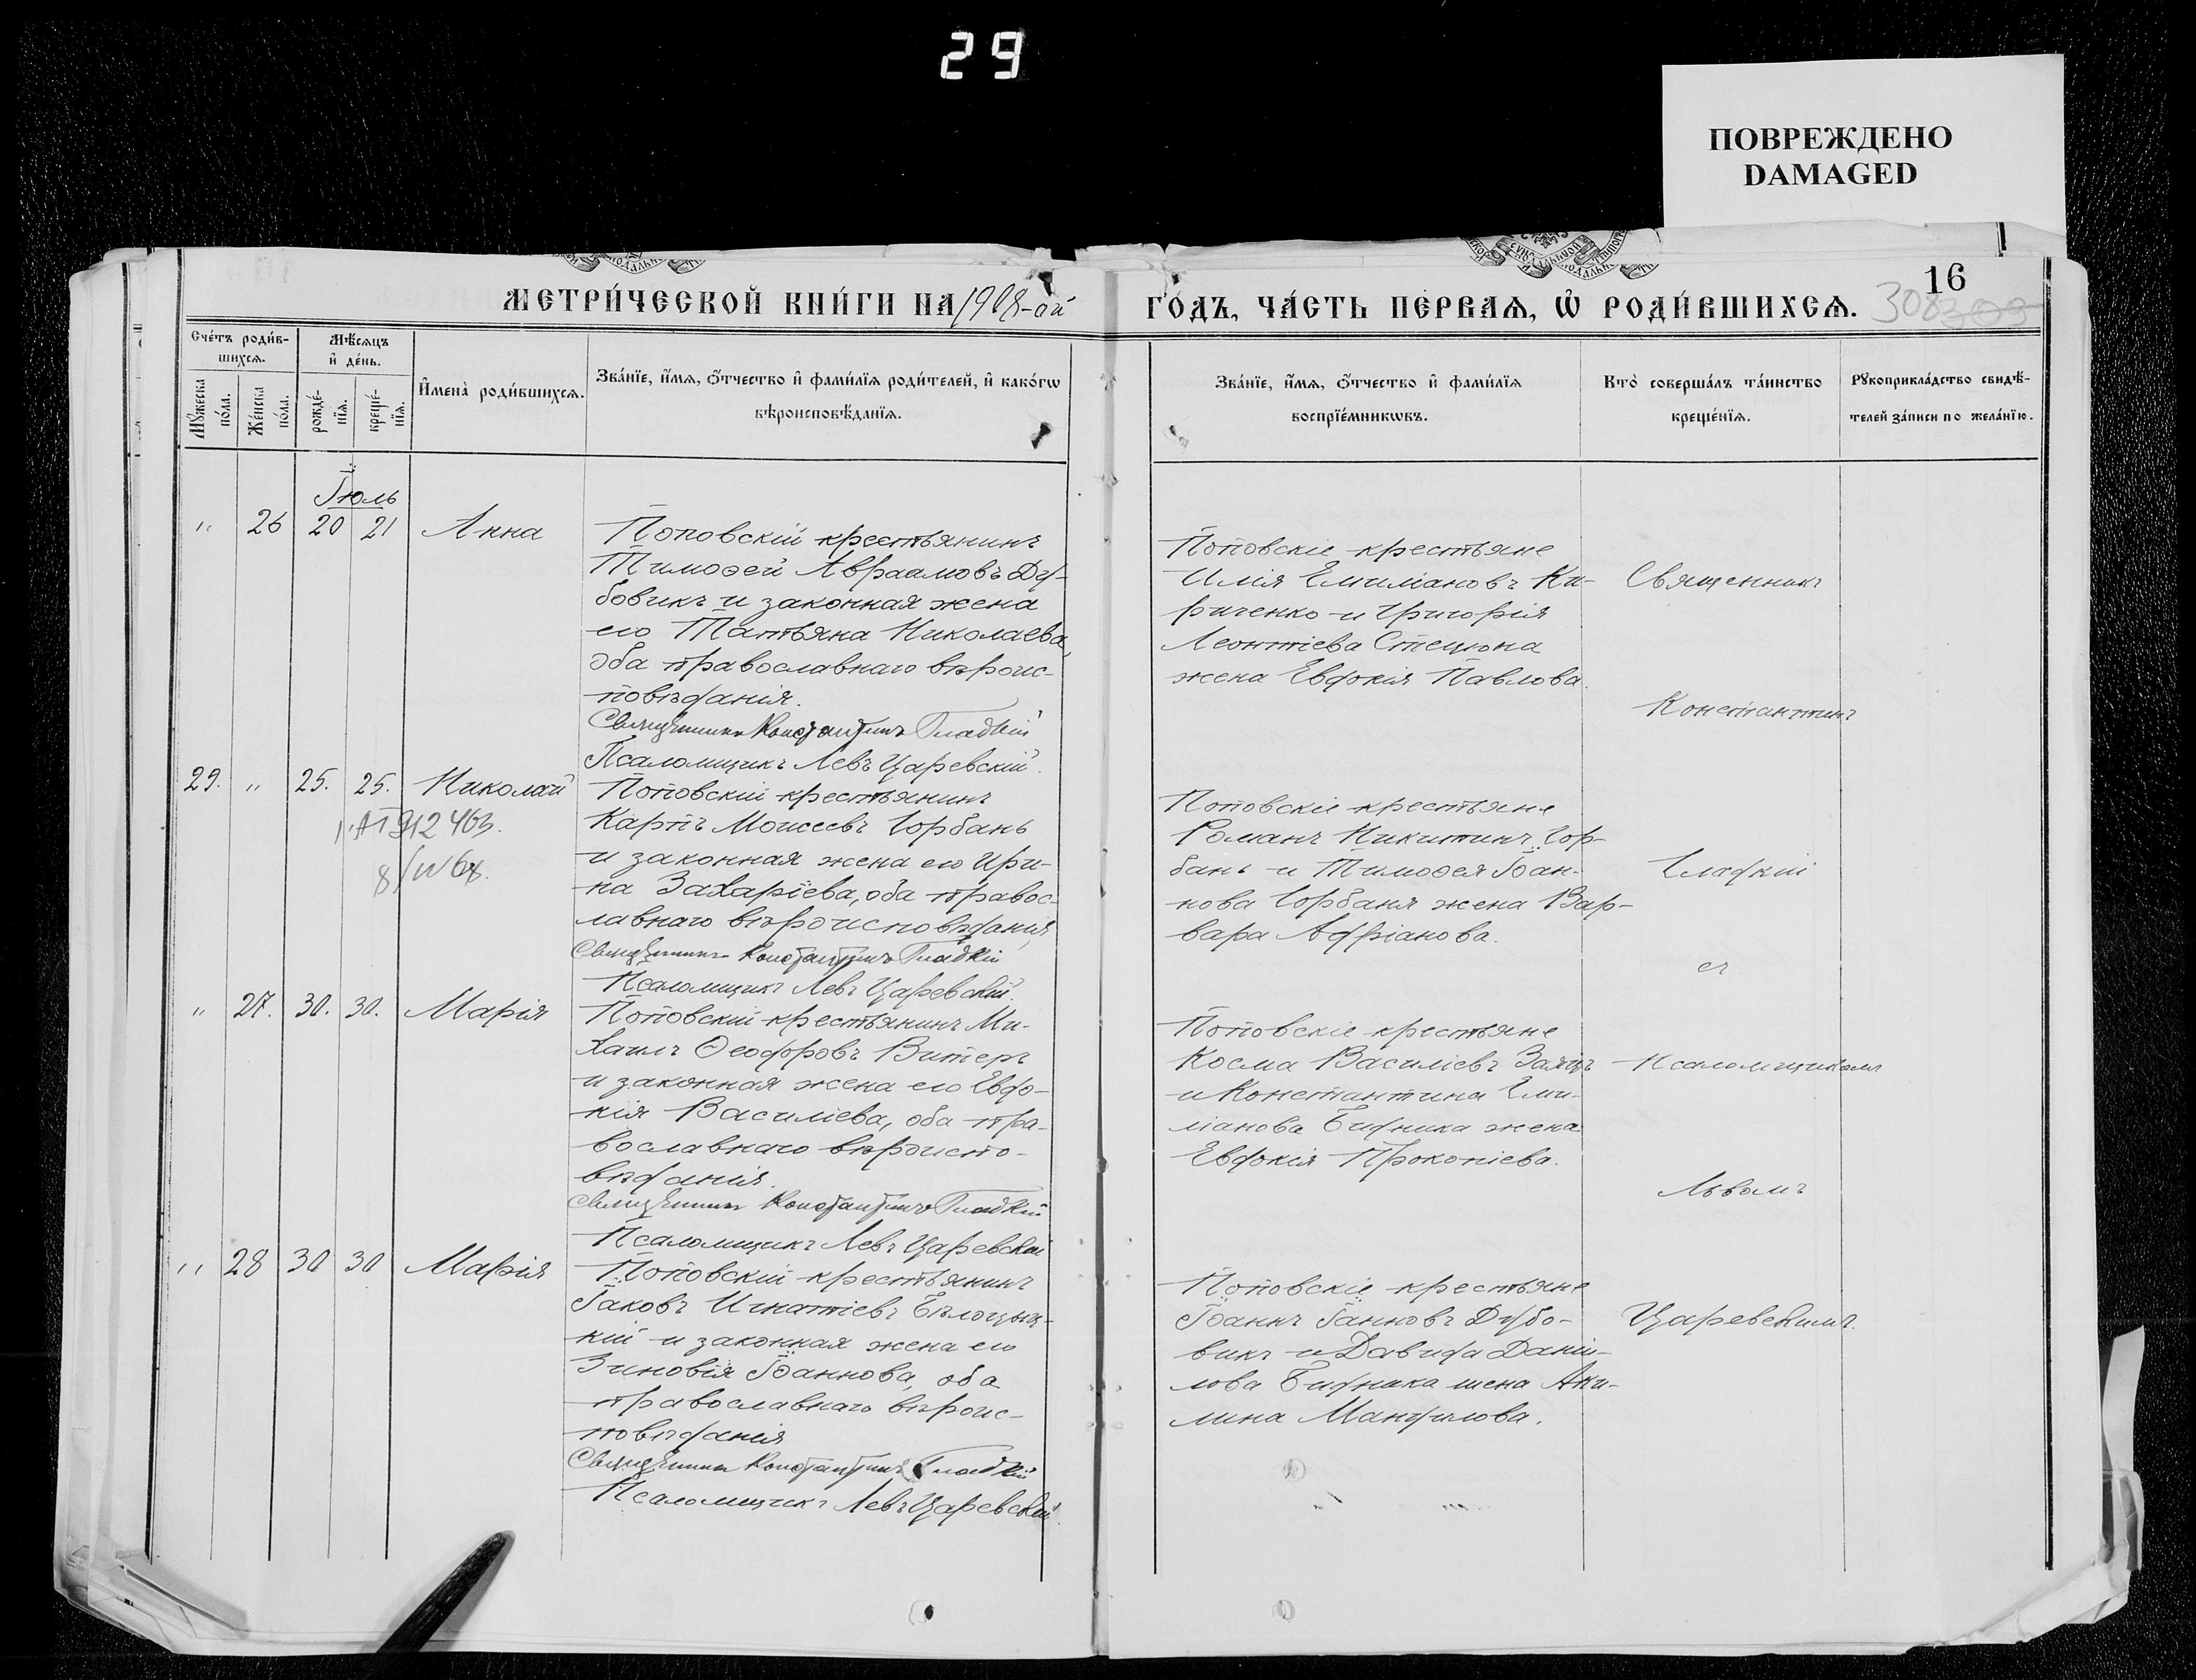 29
ПОВРЕЖДЕНО
DAMAGED
16
308
МЕТРИ́ЧЕСКОЙ КНИ́ГИ НА 1908-ой ГО́ДЪ, ЧА́СТЬ ПЕ́РВАѦ, Ѡ РОДИ́ВШИХСѦ.
Сче́тъ роди́в-
шихсѧ.
Мѣ́сѧцъ
и де́нь.
Мꙋ́жеска
по́ла.
Же́нска
по́ла.
рожде́-
нїѧ.
креще́-
нїѧ.
Имена̀ роди́вшихсѧ.
Зва́нїе, и́мѧ, о́тчество и фами́лїѧ роди́телей, и како́гѡ
вѣроисповѣ́данїѧ.
Зва́нїе, и́мѧ, о́тчество и фами́лїѧ
воспрїе́мникѡвъ.
Кто̀ соверша́лъ та́инство
креще́нїѧ.
Рꙋкоприкла́дство свидѣ́-
телей за́писи по жела́нїю.
Іюль
" 26 20 21 Анна
Поповскій крестьянинъ
Тимоѳей Авраамовъ Ду-
бовикъ и законная жена
его Татьяна Николаева,
оба православнаго вѣроис-
повѣданія.
Священникъ Константинъ Гладкій
Псаломщикъ Левъ Царевскій.
Поповскіе крестьяне
Илія Емиліановъ Ки-
риченко и Григорія
Леонтіева Стецюна
жена Евдокія Павлова.
Священникъ
Константинъ
29. " 25. 25. Николай
Поповскій крестьянинъ
Карпъ Моисеевъ Горбань
и законная жена его Ири-
на Захаріева, оба правос-
лавнаго вѣроисповѣданія,
Священникъ Константинъ Гладкій
Псаломщикъ Левъ Царевскій.
Поповскіе крестьяне
Романъ Никитинъ Гор-
бань и Тимоѳея Іоан-
нова Горбаня жена Вар-
вара Адріанова.
Гладкій
съ
" 27. 30. 30. Марія
Поповскій крестьянинъ Ми-
хаилъ Ѳеодоровъ Витеръ
и законная жена его Евдо-
кія Василіева, оба пра-
вославнаго вѣроиспо-
вѣданія.
Священникъ Константинъ Гладкій
Псаломщикъ Левъ Царевскій
Поповскіе крестьяне
Косма Василіевъ Заяцъ
и Константина Еми-
ліанова Бидника жена
Евдокія Прокопіева.
Псаломщикомъ
Львомъ
" 28 30 30 Марія
Поповскій крестьянинъ
Іаковъ Игнатіевъ
кій и законная жена его
Зиновія Іоаннова, оба
православнаго вѣроис-
повѣданія
Священникъ Константинъ Гладкій
Псаломщикъ Левъ Царевскій.
Поповскіе крестьяне
Іоаннъ Іанновъ Дубо-
викъ и Давида Даніи-
лова Бидника жена Аки-
лина Мануилова.
Царевскимъ.